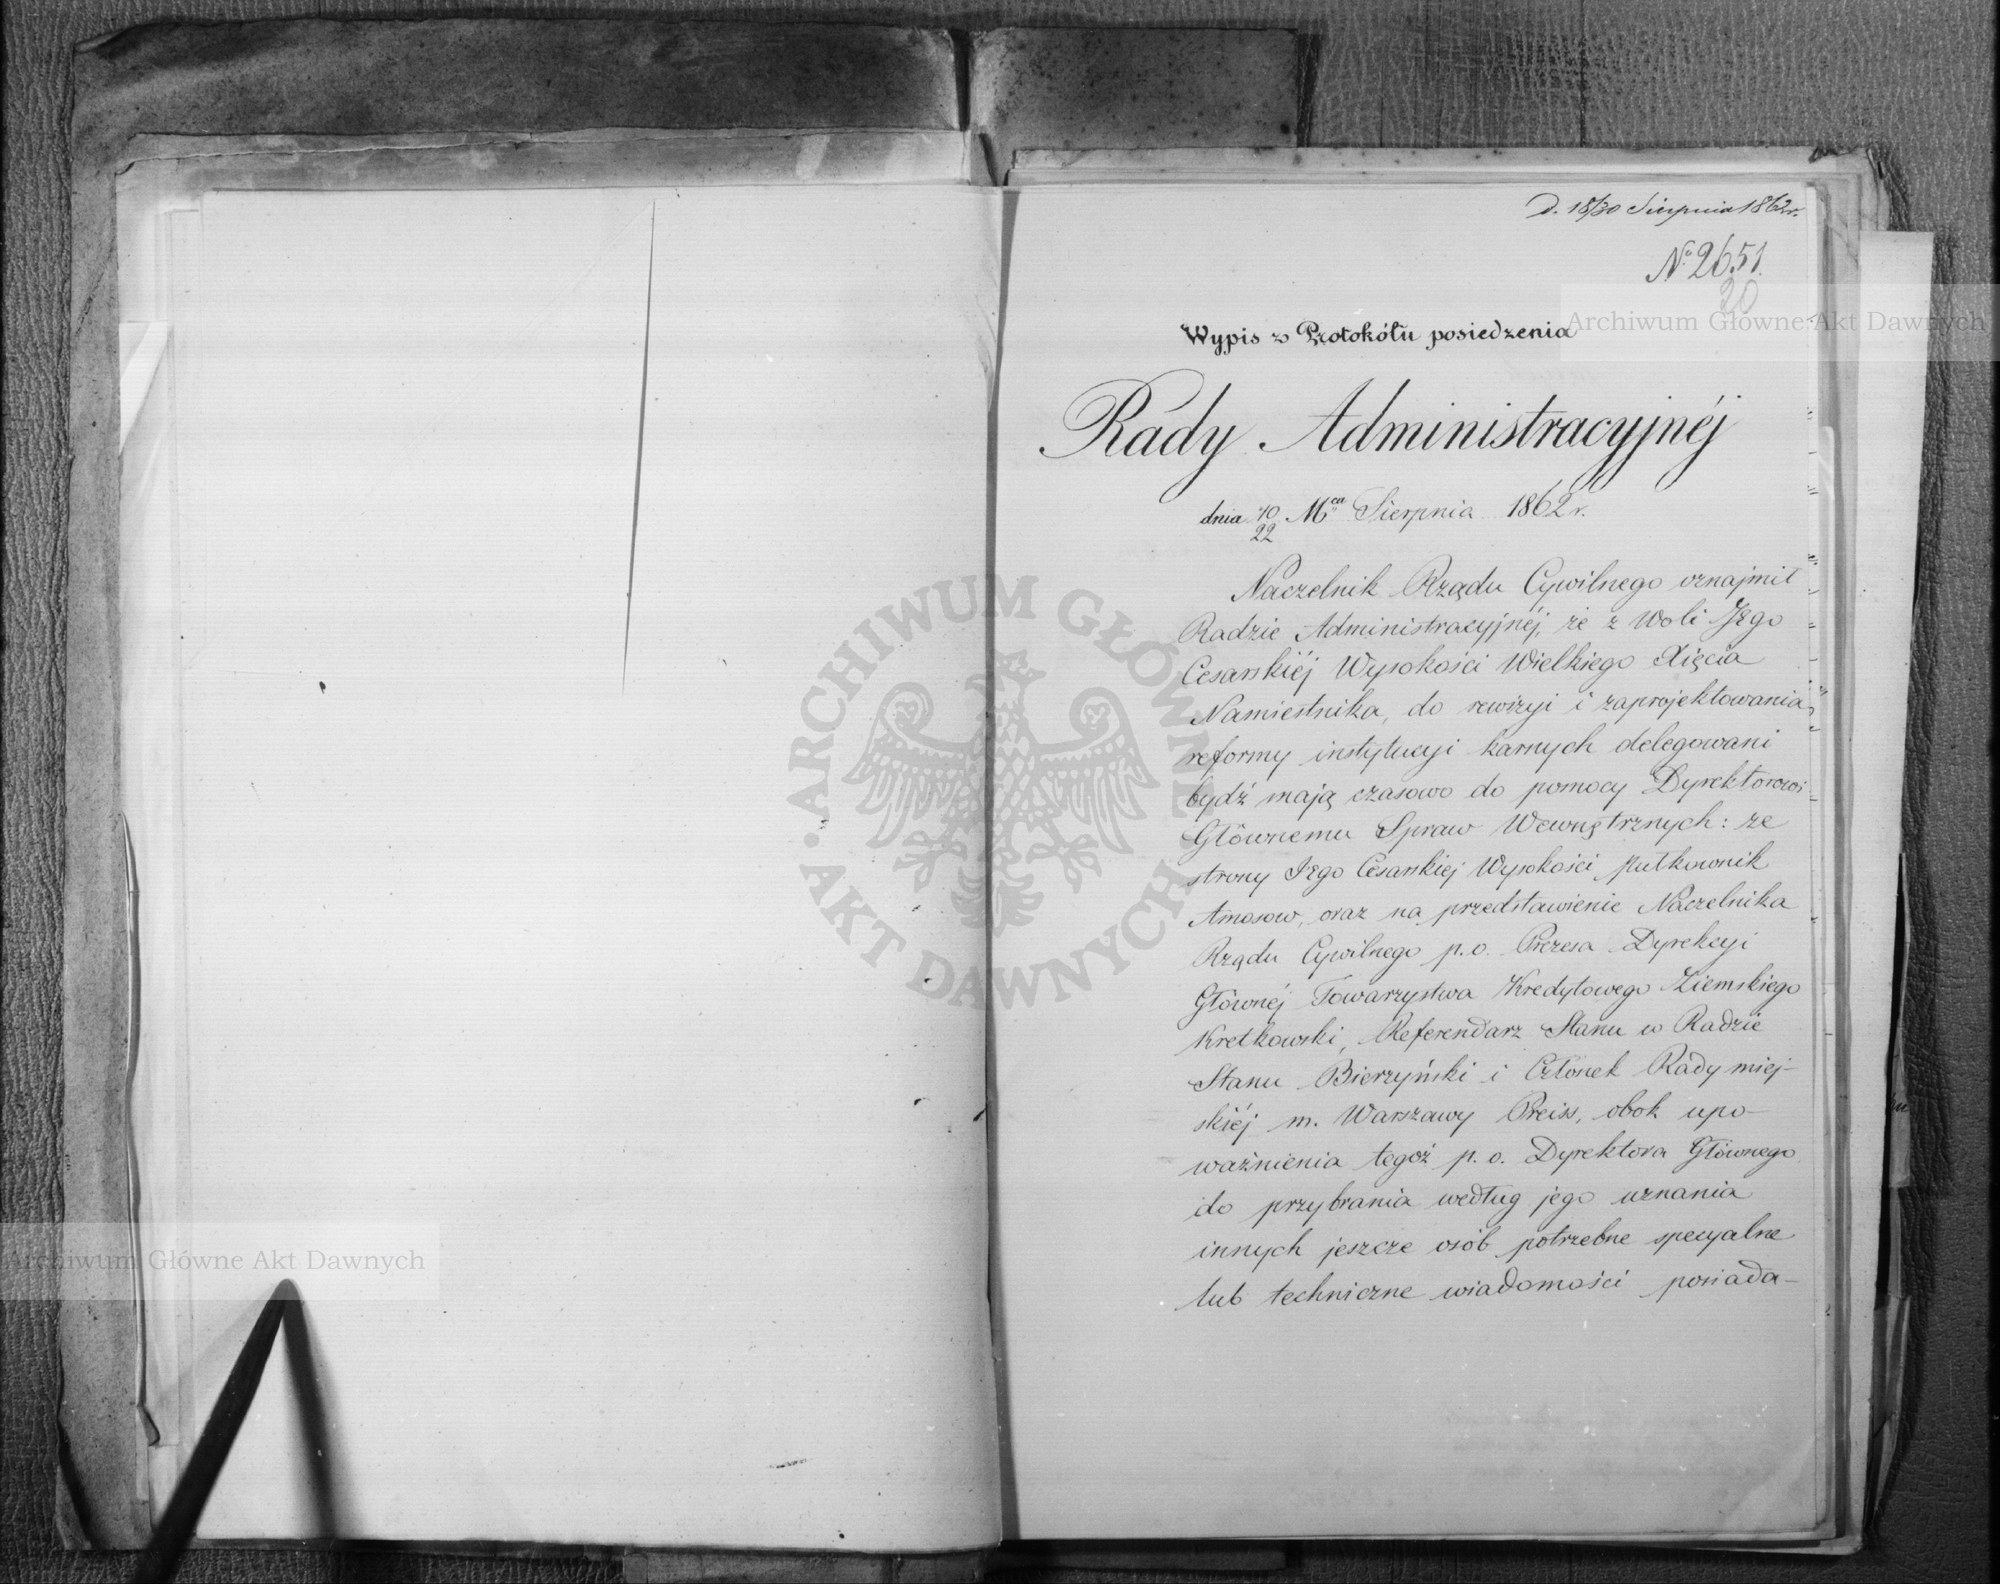 D. 18/30 Sierpnia 1862 r.
No 2651.
20
Wypis z Protokółu posiedzenia
Rady Administracyjnéj
dnia 10/22 Mca Sierpnia 1862 r.
Naczelnik Rządu Cywilnego oznajmił
Radzie Administracyjnéj, że z Woli Jego
Cesarskiéj Wysokości Wielkiego Xięcia
Namiestnika, do rewizyi i zaprojektowania
reformy instytucyi karnych delegowani
bydź mają czasowo do pomocy Dyrektorowi
Głównemu Spraw Wewnętrznych: ze
strony Jego Cesarskiej Wysokości Pułkownik
Amosow, oraz na przedstawienie Naczelnika
Rządu Cywilnego p.o. Prezesa Dyrekcyi
Głównéj Towarzystwa Kredytowego Ziemskiego
Kretkowski, Referendarz Stanu w Radzie
Stanu Bierzyński i Członek Rady miej-
skiéj m. Warszawy Preiss, obok upo-
ważnienia tegoż p. o. Dyrektora Głównego
do przybrania według jego uznania
innych jeszcze osób potrzebne specyalne
lub techniczne wiadomości posiada-
Archiwum Główne Akt Dawnych
Archiwum Główne Akt Dawnych
ARCHIWUM GŁÓWNE • AKT DAWNYCH •